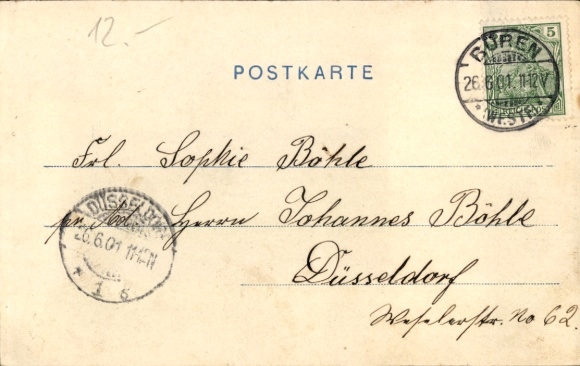 12.-
5
BÜREN
26.6.01.11-12V
* (WESTF) *
POSTKARTE
Frl. Sophie Böhle
pr. Adr. Herrn Johannes Böhle
Düsseldorf
Weselerstr. No 62.
DÜSSELDORF
26.6.01 11-12N
* 1 6